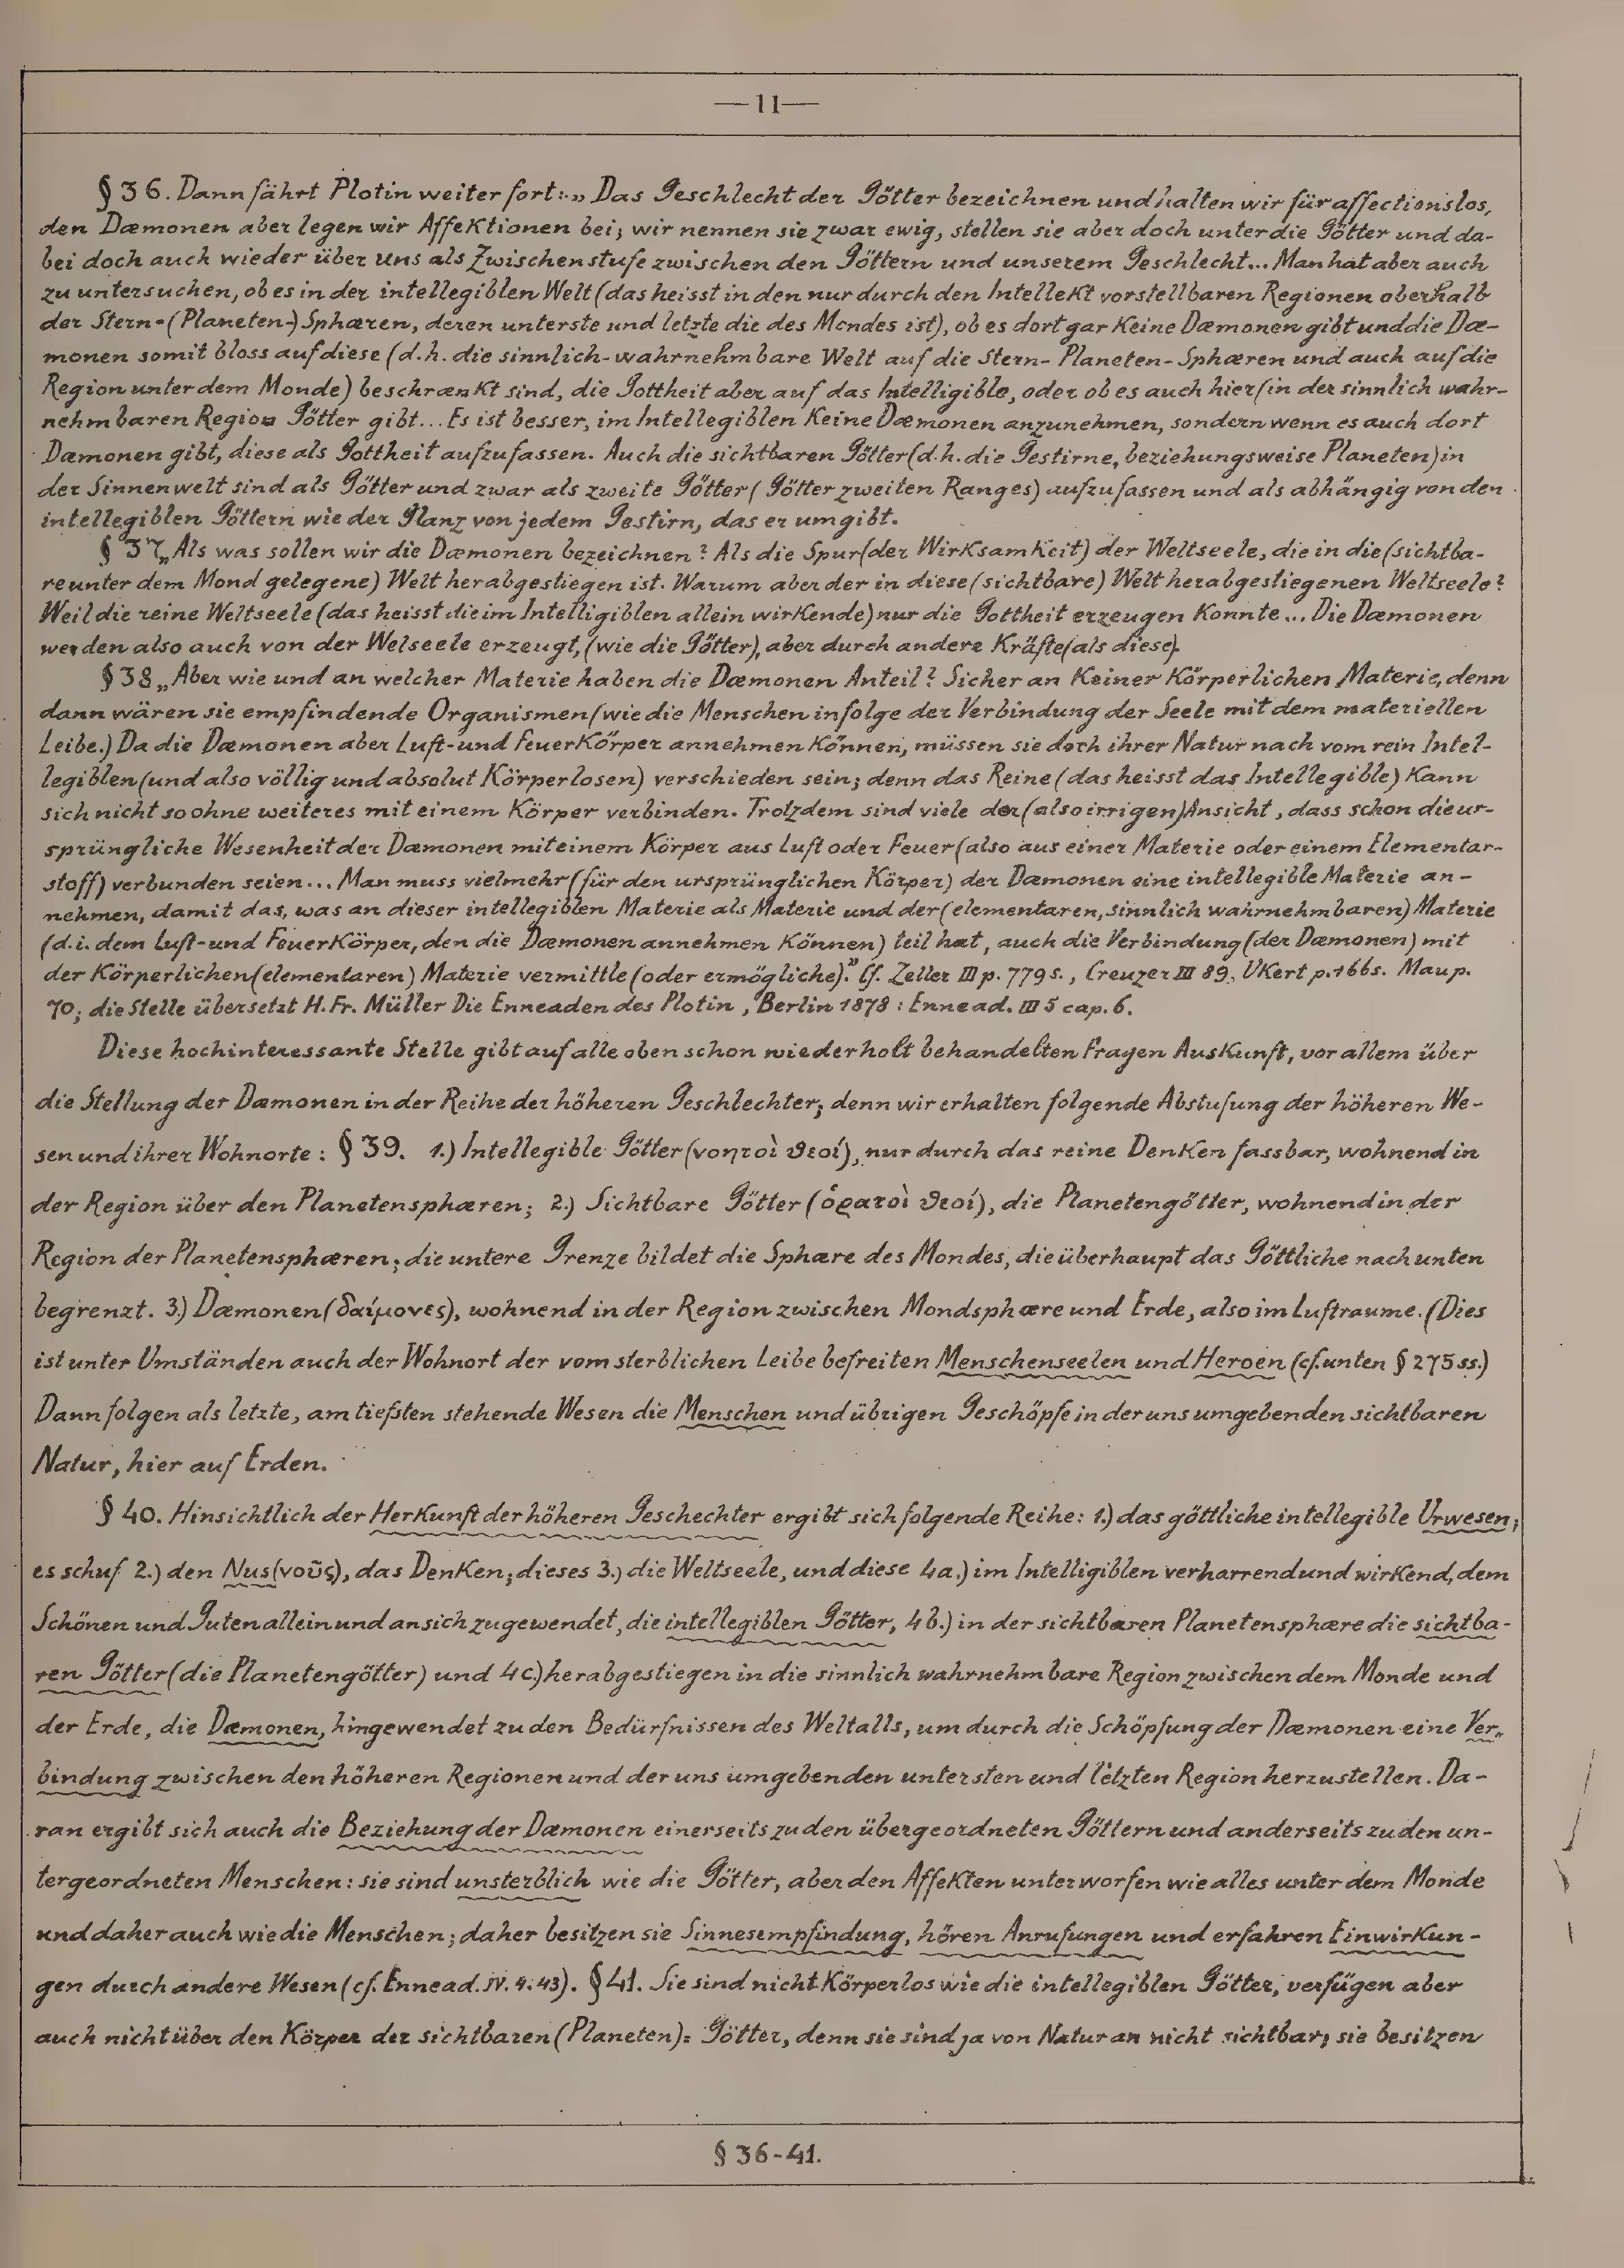 —11—
§ 36. Dann fährt Plotin weiter fort: „ Das Geschlecht der Götter bezeichnen und halten wir für affectionslos,
den Dæmonen aber legen wir Affektionen bei; wir nennen sie zwar ewig, stellen sie aber doch unter die Götter und da-
bei doch auch wieder über uns als Zwischenstufe zwischen den Göttern und unserem Geschlecht... Man hat aber auch
zu untersuchen, ob es in der intellegiblen Welt (das heisst in den nur durch den Intellekt vorstellbaren Regionen oberhalb
der Stern-(Planeten-) Sphæren, deren unterste und letzte die des Mondes ist), ob es dort gar keine Dæmonen gibt und die Dæ-
monen somit bloss auf diese (d.h. die sinnlich-wahrnehmbare Welt auf die Stern- Planeten- Sphæren und auch auf die
Region unter dem Monde) beschrænkt sind, die Gottheit aber auf das Intelligible, oder ob es auch hier (in der sinnlich wahr-
nehmbaren Region Götter gibt... Es ist besser, im Intellegiblen keine Dæmonen anzunehmen, sondern wenn es auch dort
Dæmonen gibt, diese als Gottheit aufzufassen. Auch die sichtbaren Götter (d.h. die Gestirne, beziehungsweise Planeten) in
der Sinnenwelt sind als Götter und zwar als zweite Götter ( Götter zweiten Ranges) aufzufassen und als abhängig von den
intellegiblen Göttern wie der Glanz von jedem Gestirn, das er umgibt.
§ 37 „Als was sollen wir die Dæmonen bezeichnen? Als die Spur (der Wirksamkeit) der Weltseele, die in die (sichtba-
re unter dem Mond gelegene) Welt herabgestiegen ist. Warum aber der in diese (sichtbare) Welt herabgestiegenen Weltseele?
Weil die reine Weltseele (das heisst die im Intelligiblen allein wirkende) nur die Gottheit erzeugen konnte... Die Dæmonen
werden also auch von der Welseele erzeugt, (wie die Götter), aber durch andere Kräfte (als diese).
§ 38 „Aber wie und an welcher Materie haben die Dæmonen Anteil? Sicher an keiner körperlichen Materie, denn
dann wären sie empfindende Organismen (wie die Menschen infolge der Verbindung der Seele mit dem materiellen
Leibe.) Da die Dæmonen aber Luft- und Feuerkörper annehmen können, müssen sie doch ihrer Natur nach vom rein Intel-
legiblen (und also völlig und absolut Körperlosen) verschieden sein; denn das Reine (das heisst das Intellegible) kann
sich nicht so ohne weiteres mit einem Körper verbinden. Trotzdem sind viele der (also irrigen) Ansicht, dass schon die ur-
sprüngliche Wesenheit der Dæmonen mit einem Körper aus Luft oder Feuer (also aus einer Materie oder einem Elementar-
stoff) verbunden seien... Man muss vielmehr (für den ursprünglichen Körper) der Dæmonen eine intellegible Materie an-
nehmen, damit das, was an dieser intellegiblen Materie als Materie und der (elementaren, sinnlich wahrnehmbaren) Materie
(d.i. dem Luft- und Feuerkörper, den die Dæmonen annehmen können) teil hat, auch die Verbindung (der Dæmonen) mit
der körperlichen (elementaren) Materie vermittle (oder ermögliche)." Cf. Zeller III p. 779 s., Creuzer III 89, Ukert p. 166s. Mau p.
70; die Stelle übersetzt H. Fr. Müller Die Enneaden des Plotin, Berlin 1878 : Ennead. III 5 cap. 6.
Diese hochinteressante Stelle gibt auf alle oben schon wiederholt behandelten Fragen Auskunft, vor allem über
die Stellung der Dæmonen in der Reihe der höheren Geschlechter; denn wir erhalten folgende Abstufung der höheren We-
sen und ihrer Wohnorte : § 39. 1.) Intellegible Götter (νοητοὶ θεοί), nur durch das reine Denken fassbar, wohnend in
der Region über den Planetensphæren; 2.) Sichtbare Götter (ὁρατοὶ θεοί), die Planetengötter, wohnend in der
Region der Planetensphæren; die untere Grenze bildet die Sphære des Mondes, die überhaupt das Göttliche nach unten
begrenzt. 3.) Dæmonen (δαίμονες), wohnend in der Region zwischen Mondsphære und Erde, also im Luftraume. (Dies
ist unter Umständen auch der Wohnort der vom sterblichen Leibe befreiten Menschenseelen und Heroen (cf. unten § 275 ss.)
Dann folgen als letzte, am tiefsten stehende Wesen die Menschen und übrigen Geschöpfe in der uns umgebenden sichtbaren
Natur, hier auf Erden.
§ 40. Hinsichtlich der Herkunft der höheren Geschechter ergibt sich folgende Reihe: 1.) das göttliche intellegible Urwesen;
es schuf 2.) den Nus (νοῦς), das Denken; dieses 3.) die Weltseele, und diese 4a.) im Intelligiblen verharrend und wirkend, dem
Schönen und Guten allein und an sich zugewendet, die intellegiblen Götter, 4b.) in der sichtbaren Planetensphære die sichtba-
ren Götter (die Planetengötter) und 4c.) herabgestiegen in die sinnlich wahrnehmbare Region zwischen dem Monde und
der Erde, die Dæmonen, hingewendet zu den Bedürfnissen des Weltalls, um durch die Schöpfung der Dæmonen eine Ver-
bindung zwischen den höheren Regionen und der uns umgebenden untersten und letzten Region herzustellen. Da-
ran ergibt sich auch die Beziehung der Dæmonen einerseits zu den übergeordneten Göttern und anderseits zu den un-
tergeordneten Menschen: sie sind unsterblich wie die Götter, aber den Affekten unterworfen wie alles unter dem Monde
und daher auch wie die Menschen; daher besitzen sie Sinnesempfindung, hören Anrufungen und erfahren Einwirkun-
gen durch andere Wesen (cf. Ennead. IV. 4. 43). § 41. Sie sind nicht körperlos wie die intellegiblen Götter, verfügen aber
auch nicht über den Körper der sichtbaren (Planeten)= Götter, denn sie sind ja von Natur an nicht sichtbar; sie besitzen
§ 36-41.